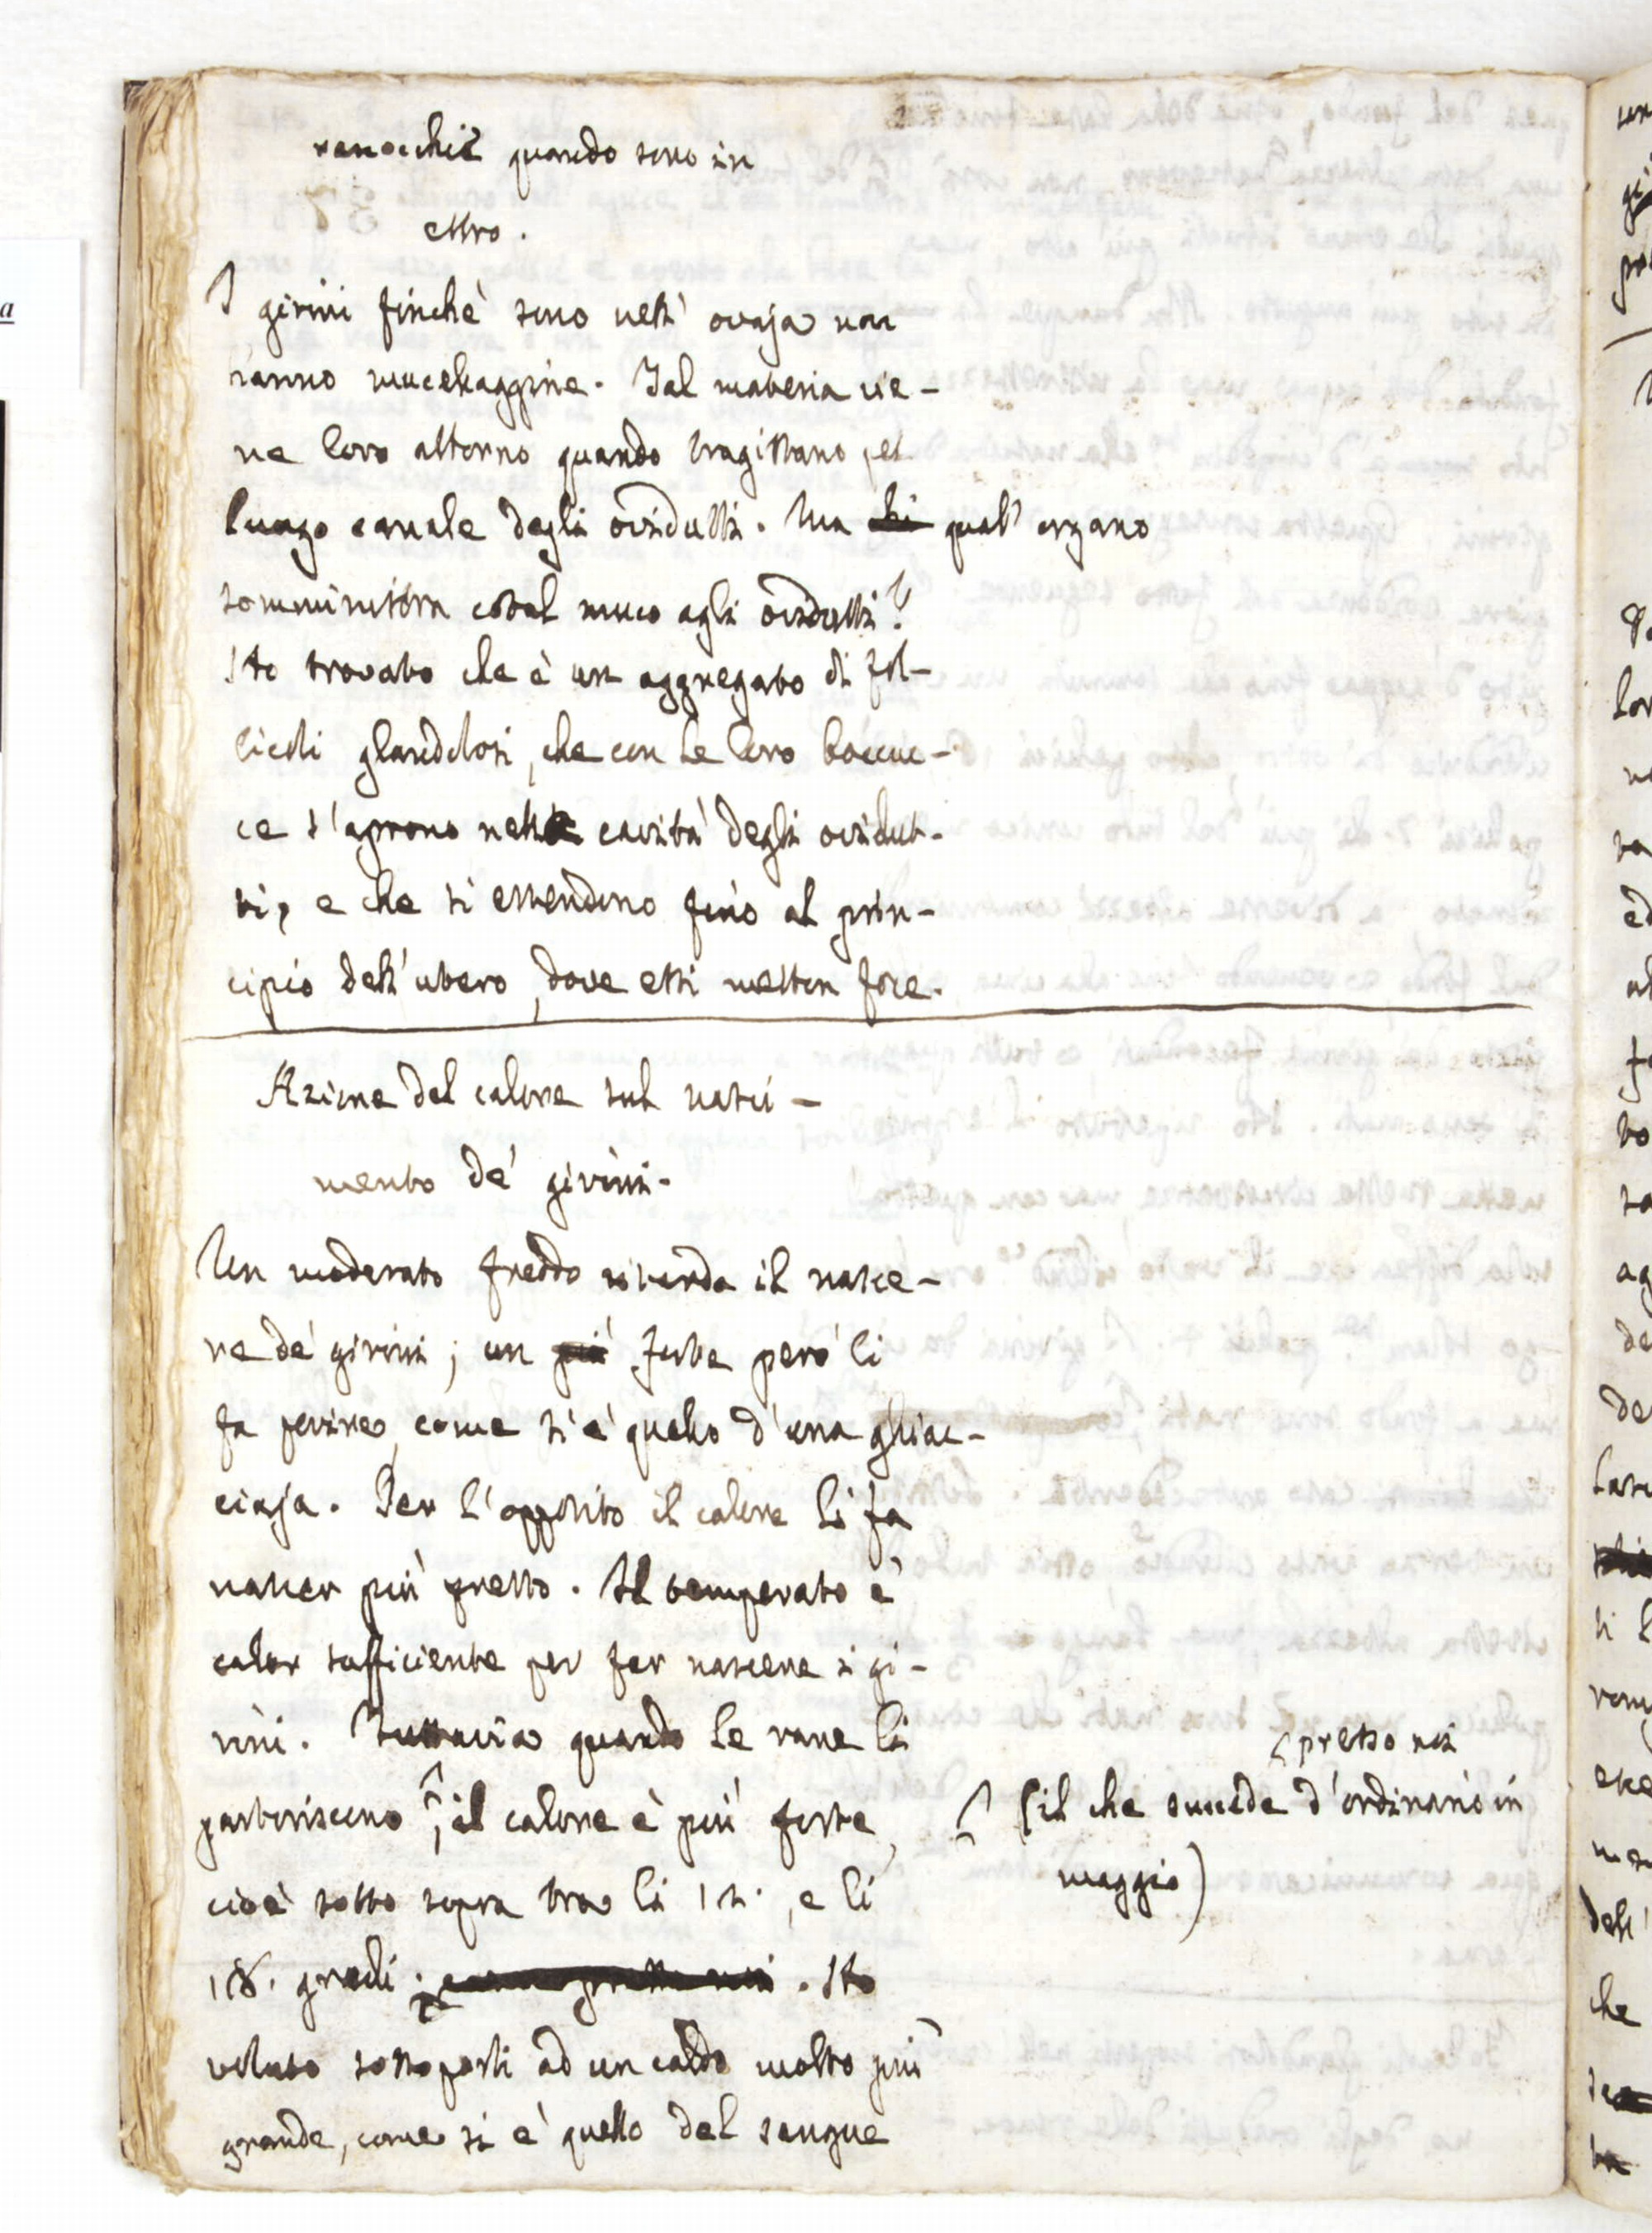 ranocchie quando sono in
estro.
I girini finchè sono nell' ovaja non
hanno mucellaggine. Tal materia vie-
ne loro attorno quando tragittano pel
lungo canale degli ovidutti. Ma chi qual' organo
somministra cotal muco agli ovidutti?
Ho trovato che è un aggregato di fol-
licoli glandolosi, che con le loro boccuc-
ce s'aprono nella cavità degli ovidut-
ti, e che si estendono fino al prin-
cipio dell' utero, dove essi metton foce.
Azione del calore sul nasci-
mento de' girini.
Un moderato freddo ritarda il nasce-
re de' girini; un più forte però li
fa perire, come si è quello d'una ghiac-
ciaja. Per l'opposito il calore li fa
nascer più presto. Il temperato è
calor sufficiente per far nascere i gi-
rini. Tuttavia quando le rane li
presso noi
partoriscono, il calore è più forte,
(il che succede d'ordinario in
maggio)
cioè sotto sopra tra li 12., e li
18. gradi. Ho
voluto sottoporli ad un caldo molto più
grande, come si è quello del sangue